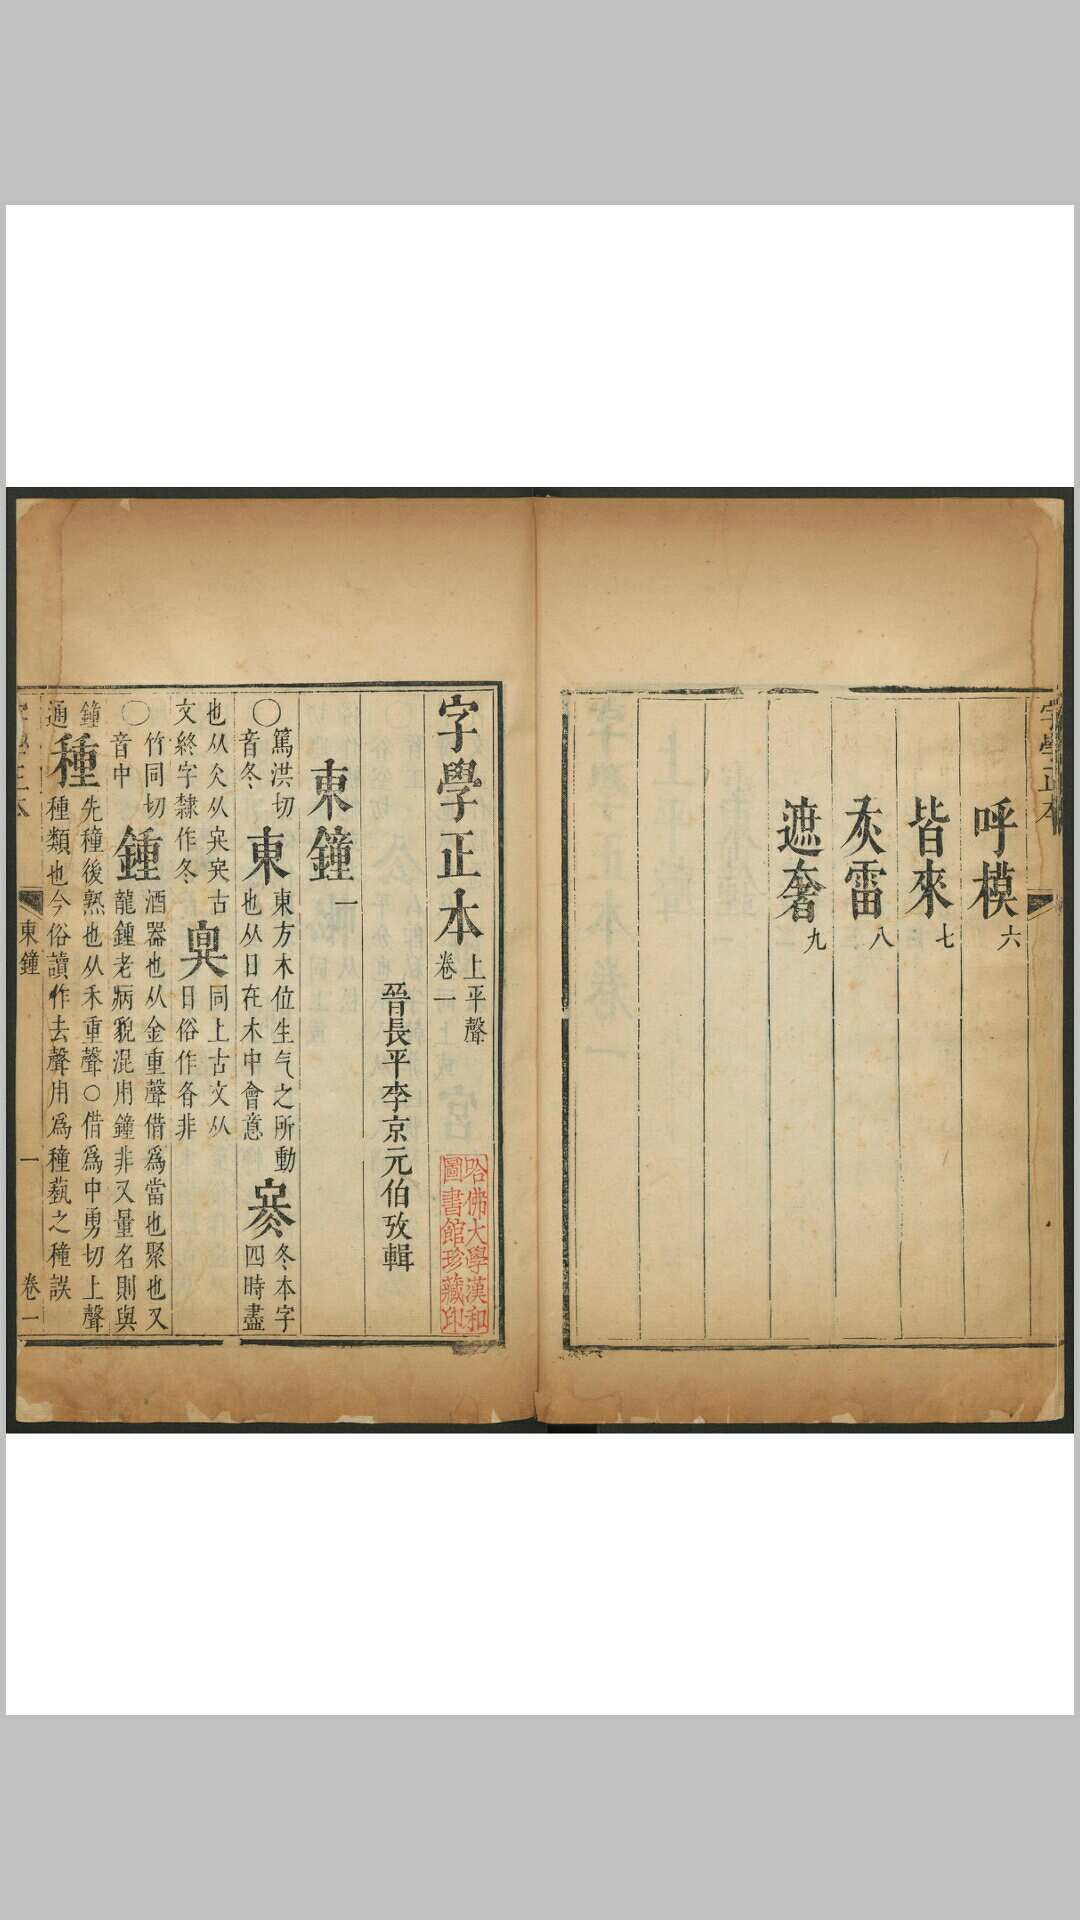 字學正本
呼模 六
皆來 七
灰雷 八
遮奢 九
字學正本 上平聲 卷一
哈佛大學漢和圖書館珍藏印
晉長平李京元伯攷輯
東鐘 一
〇篤洪切音冬 東 東方木位生气之所動也从日在木中會意 冬本字四時盡
也从仌从㝐㝐古文終字隸作冬 同上古文从日俗作各非
〇竹同切音中 鍾 酒器也从金重聲借為當也聚也又龍鍾老病貌混用鐘非又量名則與
鐘通 種 先種後熟也从禾重聲〇借為中勇切上聲種類也今俗讀作去聲用為種藝之種誤
東鐘 一 卷一